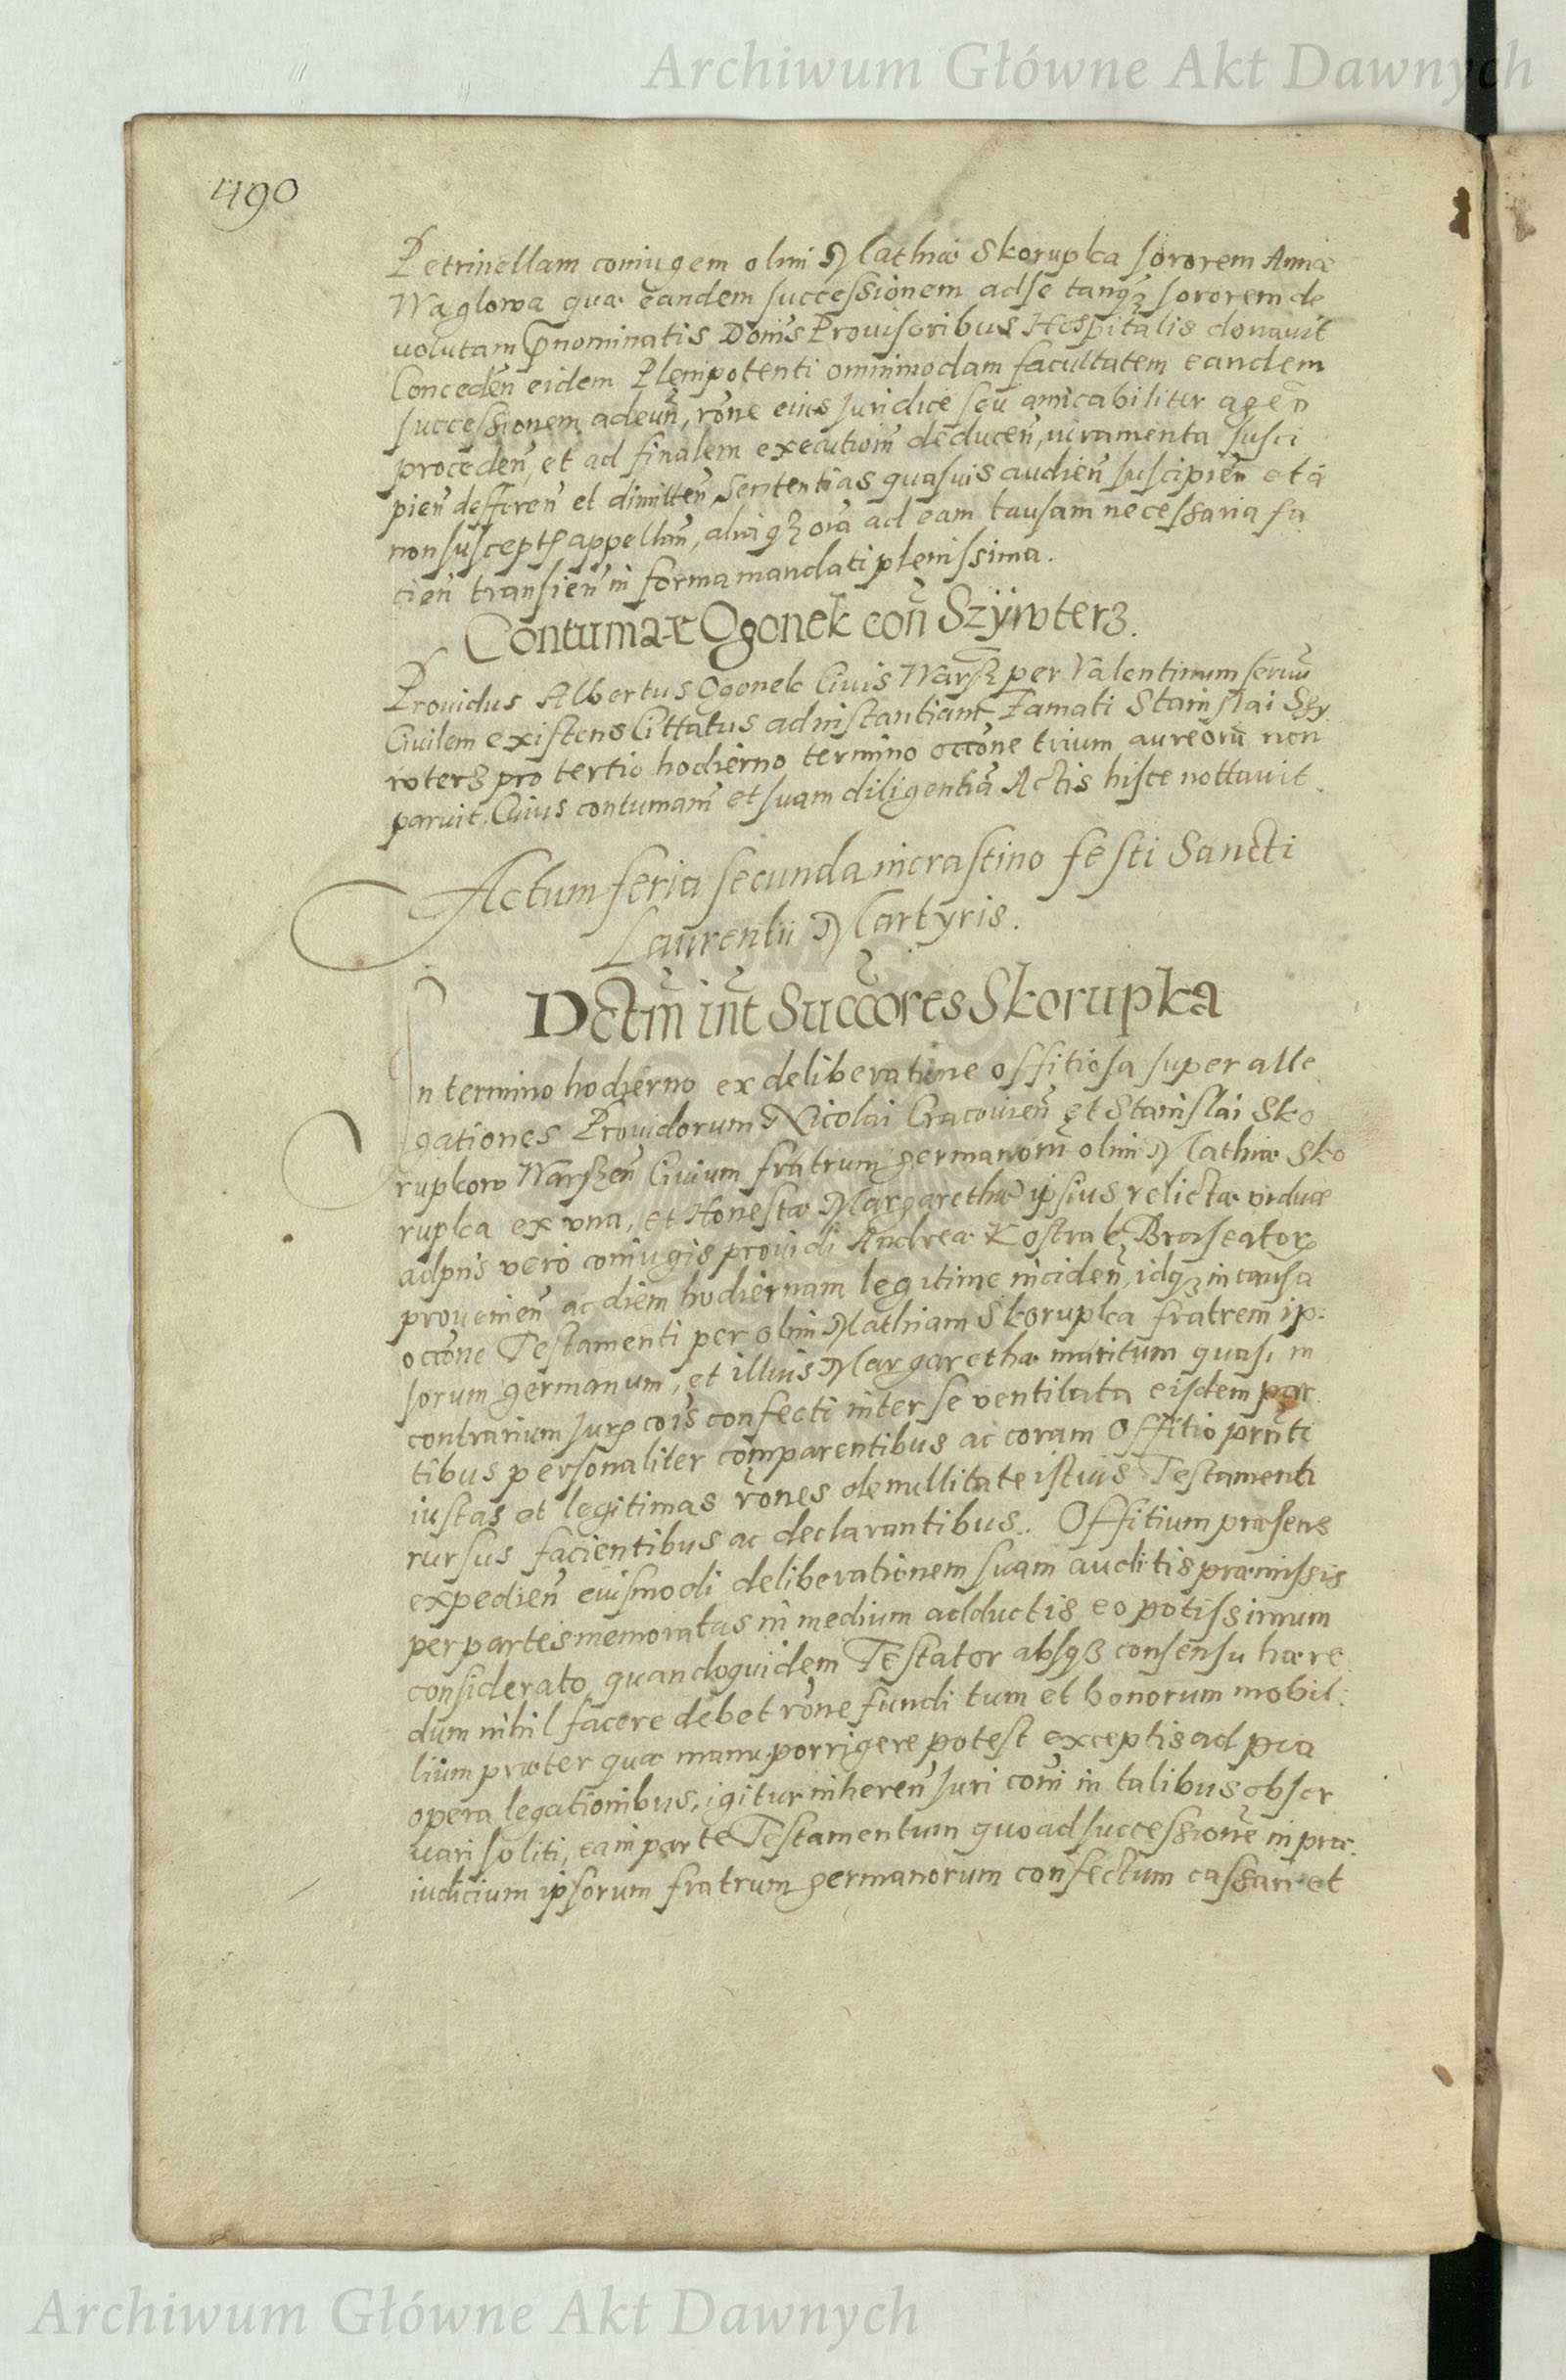 Archiwum Główne Akt Dawnych
490
Petrinellam coniugem olim Mathiæ Skorupka sororem Annæ
Wąglowa quæ eandem successionem ad se tanqȝ sororem de
uolutam p̄nominatis Domīs Prouisoribus Hospitalis donauit
Conceden̄ eidem Plenipotenti omnimodam facultatem eandem
successionem adeun̄, rōne eius Juridice seu amicabiliter agen̄
proceden̄, et ad finalem executiom̄ deducen̄, iuramenta susci
pien̄ defferen̄ et dimitten̄ Sententias quasuis audien̄ suscipien̄ et à
non suscept appellan̄, aliaqȝ oīa ad eam causam necessaria fa
cien̄ transien̄ in forma mandati plenissima.
Contumaē Ogonek con̄ Szÿwterȝ.
Prouidus Albertus Ogonek Ciuis Warsȝ per Valentinum seruū
Ciuilem existens Cittatus ad instantiam Famati Stanislai Szy
wterȝ pro tertio hodierno termino occōne trium aureorū non
paruit. Cuius contumam̄ et suam diligentiā Actis hisce nottauit.
Actum feria secunda in crastino festi Sancti
Laurentii Martyris.
Dectm̄ int̄ Succōres Skorupka
In termino hodierno ex deliberatione offitiosa super alle
gationes Prouidorum Nicolai Cracouien̄ et Stanislai Sko
rupkow Warszen̄ Ciuium fratrum germanorū olim Mathiæ Sko
rupka ex vna, et Honestæ Margarethæ ipsius relictæ viduæ
ad pn̄s vero coniugis prouidi Andreæ Kostrak Braseator
prouenien̄ ac diem hodiernam legitime inciden̄, idqȝ in causa
occōne Testamenti per olim Mathiam Skorupka fratrem ip:
sorum germanum, et illius Margarethæ maritum quasi in
contrarium Jur cōis confecti inter se ventilata eisdem par
tibus personaliter comparentibus ac coram Offitio pn̄ti
iustas et legitimas rōnes de nullitate istius Testamenti
rursus facientibus ac declarantibus. Offitium præsens
expedien̄ eiusmodi deliberationem suam auditis præmissis
per partes memoratas in medium adductis eo potissimum
considerato, quandoquidem Testator absqȝ consensu hære
dum nihil facere debet rōne fundi tum et bonorum mobil:
lium præter quæ manu porrigere potest exceptis ad pia
opera legationibus, igitur inheren̄ Juri com̄ in talibus obser
uari soliti, ea in parte Testamentum quoad successionē in præ:
iudicium ipsorum fratrum germanorum confectum cassari et
Archiwum Główne Akt Dawnych